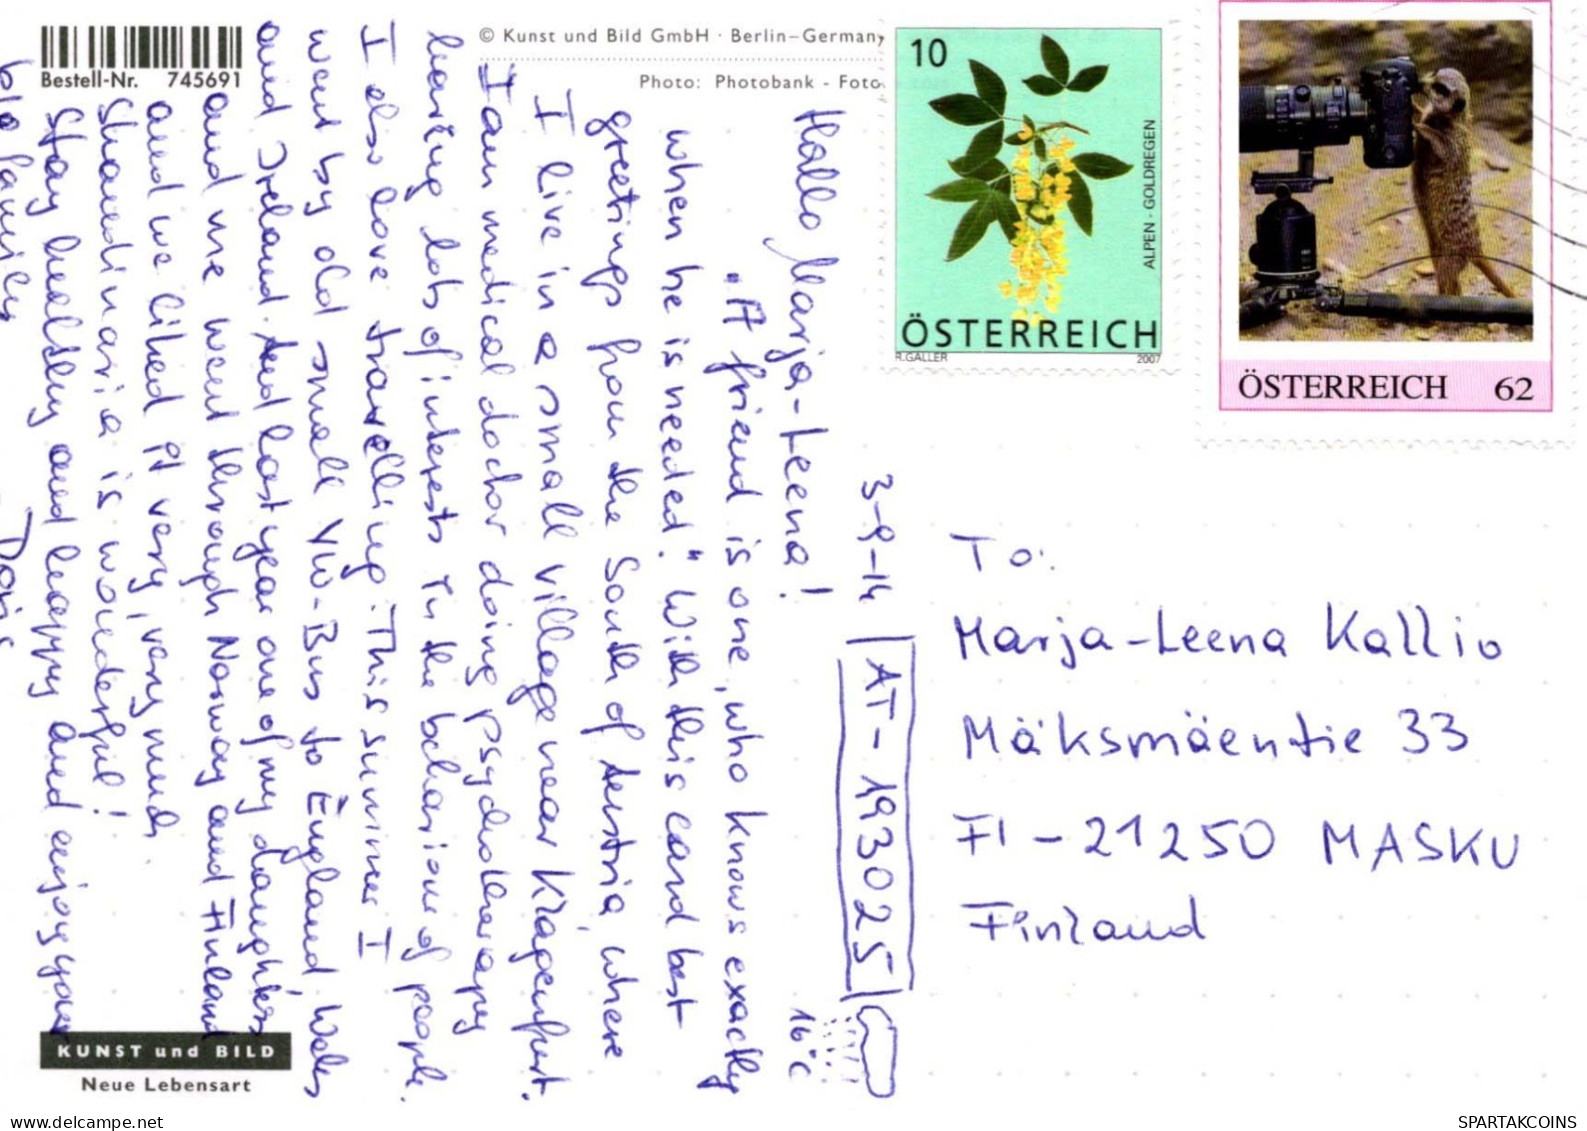 Bestell-Nr. 745691
© Kunst und Bild GmbH · Berlin–Germany
Photo: Photobank - Foto
10
ALPEN - GOLDREGEN
ÖSTERREICH
R.GALLER 2007
ÖSTERREICH 62
3-9-14
AT-193025
16°C
Hallo Marja-Leena!
"A friend is one, who knows exactly
when he is needed." With this card best
greetings from the South of Austria, where
I live in a small village near Klagenfurt.
I am medical doctor doing psychotherapy
having lots of interests in the behaviour of people.
I also love travelling. This summer I
went by old small VW-Bus to England, Wales
and Ireland. And last year one of my daughters
and me went through Norway and Finland
and we liked it very, very much.
Skandinavia is wonderful!
Stay healthy and happy and enjoy your
big family
Doris
To:
Marja-Leena Kallio
Mäksmäentie 33
FI-21250 MASKU
Finland
KUNST und BILD
Neue Lebensart
www.delcampe.net
SPARTAKCOINS